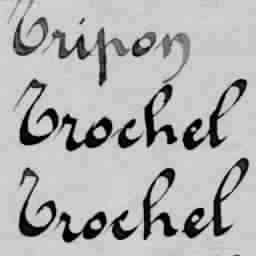 Tripon
Trochel
Trochel